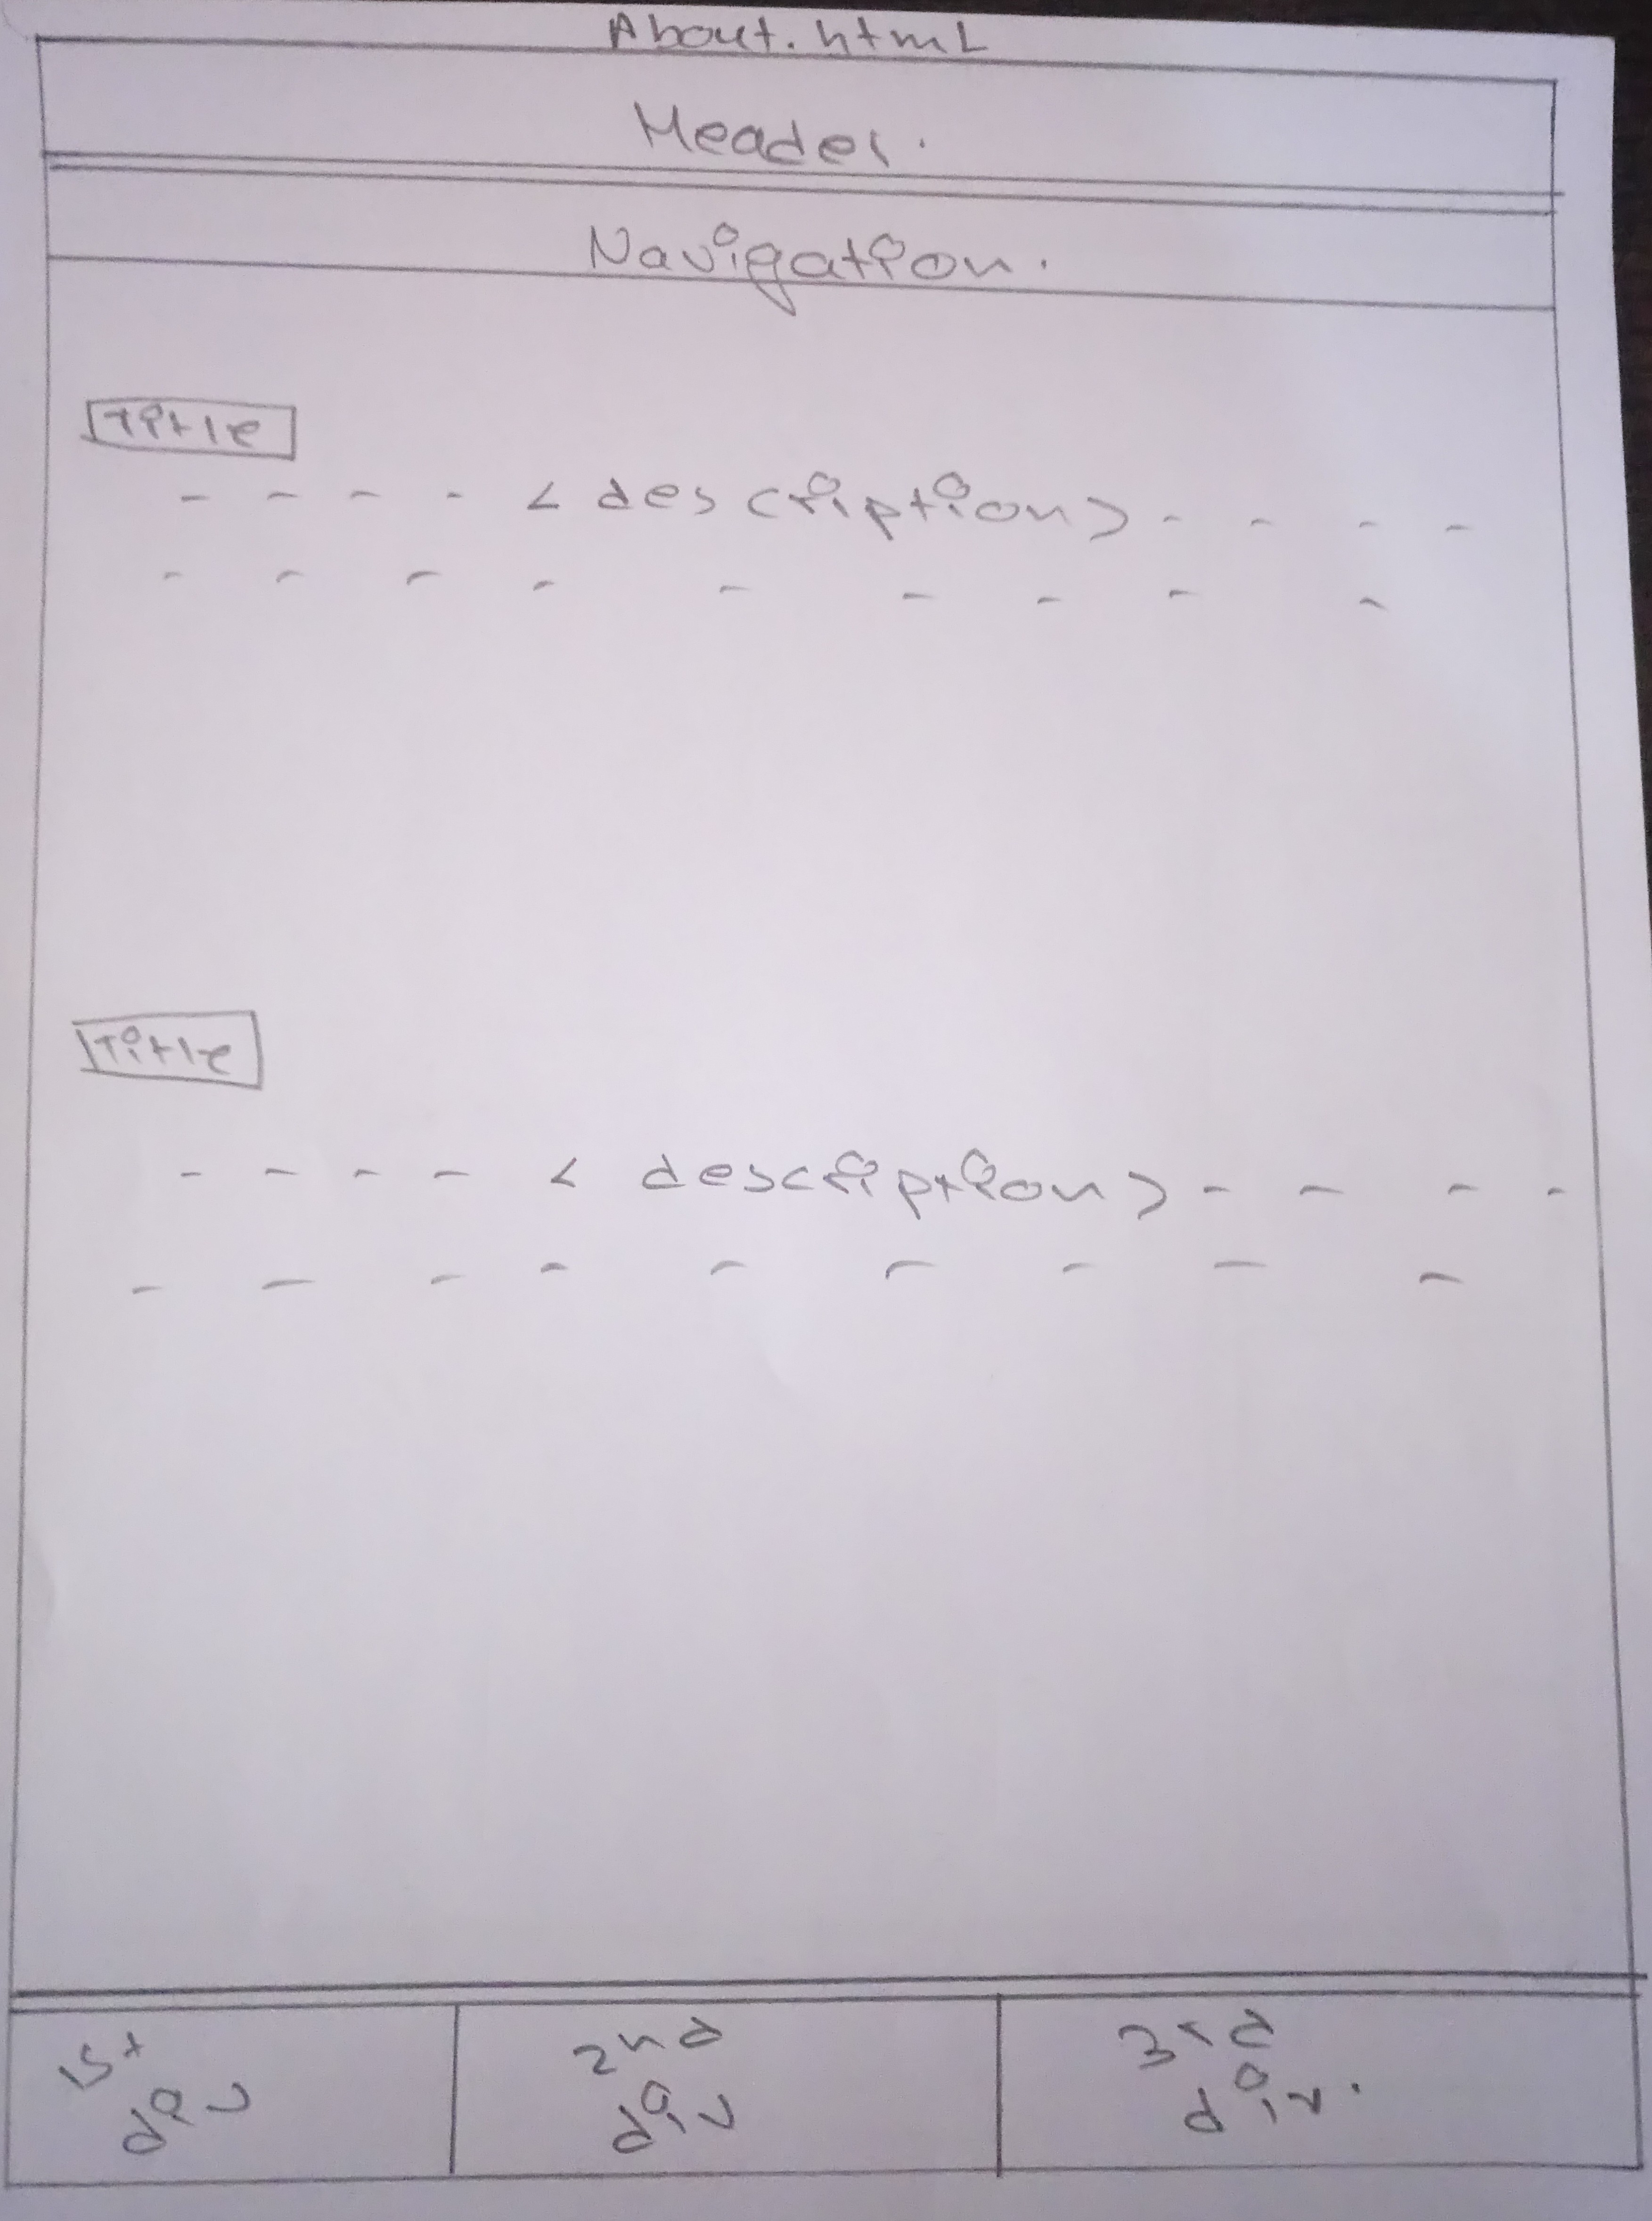 About.html
Header.
Navigation.
Title
- - - - < description > - - - -
- - - - - - - - -
Title
- - - - < description > - - - -
- - - - - - - - -
1st 2nd 3rd
div div div.